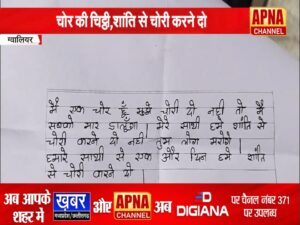 चोर की चिट्ठी,शांति से चोरी करने दो
APNA
CHANNEL
ग्वालियर
मैं एक चोर हूँ मुझे चोरी दो नही तो मैं
सबको मार डालूँगा। मेरे साथी हमे शांति से
चोरी करने दो नही तुम लोग मरोगे।
हमारे साथी से एक और दिन हमे शांति
से चोरी करने दो।
अब आपके
शहर में
ख़बर
मध्यप्रदेश/छत्तीसगढ़
और
APNA
CHANNEL
अब
DIGIANA
पर चैनल नंबर 371
पर उपलब्ध